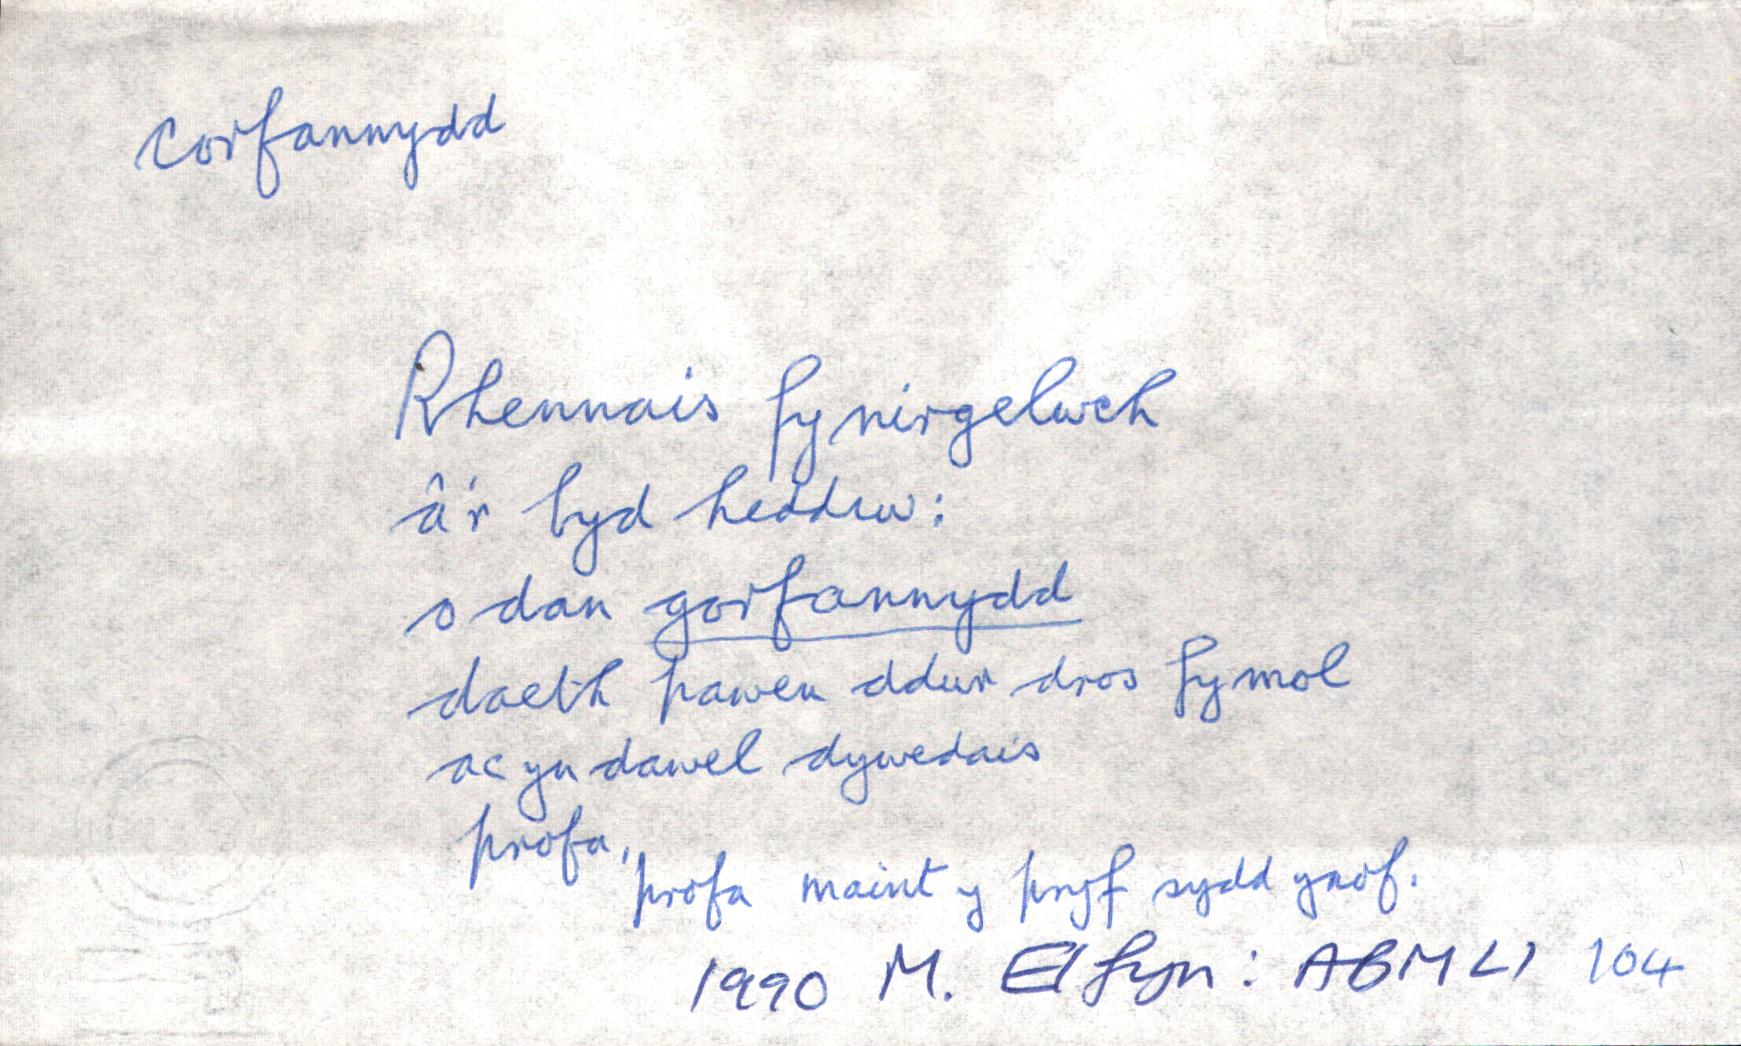 corfannydd
Rhennais fy nirgelwch
â'r byd heddiw:
o dan gorfannydd
daeth pawen ddur dros fy mol
ac yn dawel dywedais
profa,
profa maint y pryf sydd ynof.
1990 M. Elfyn: ABMLl 104